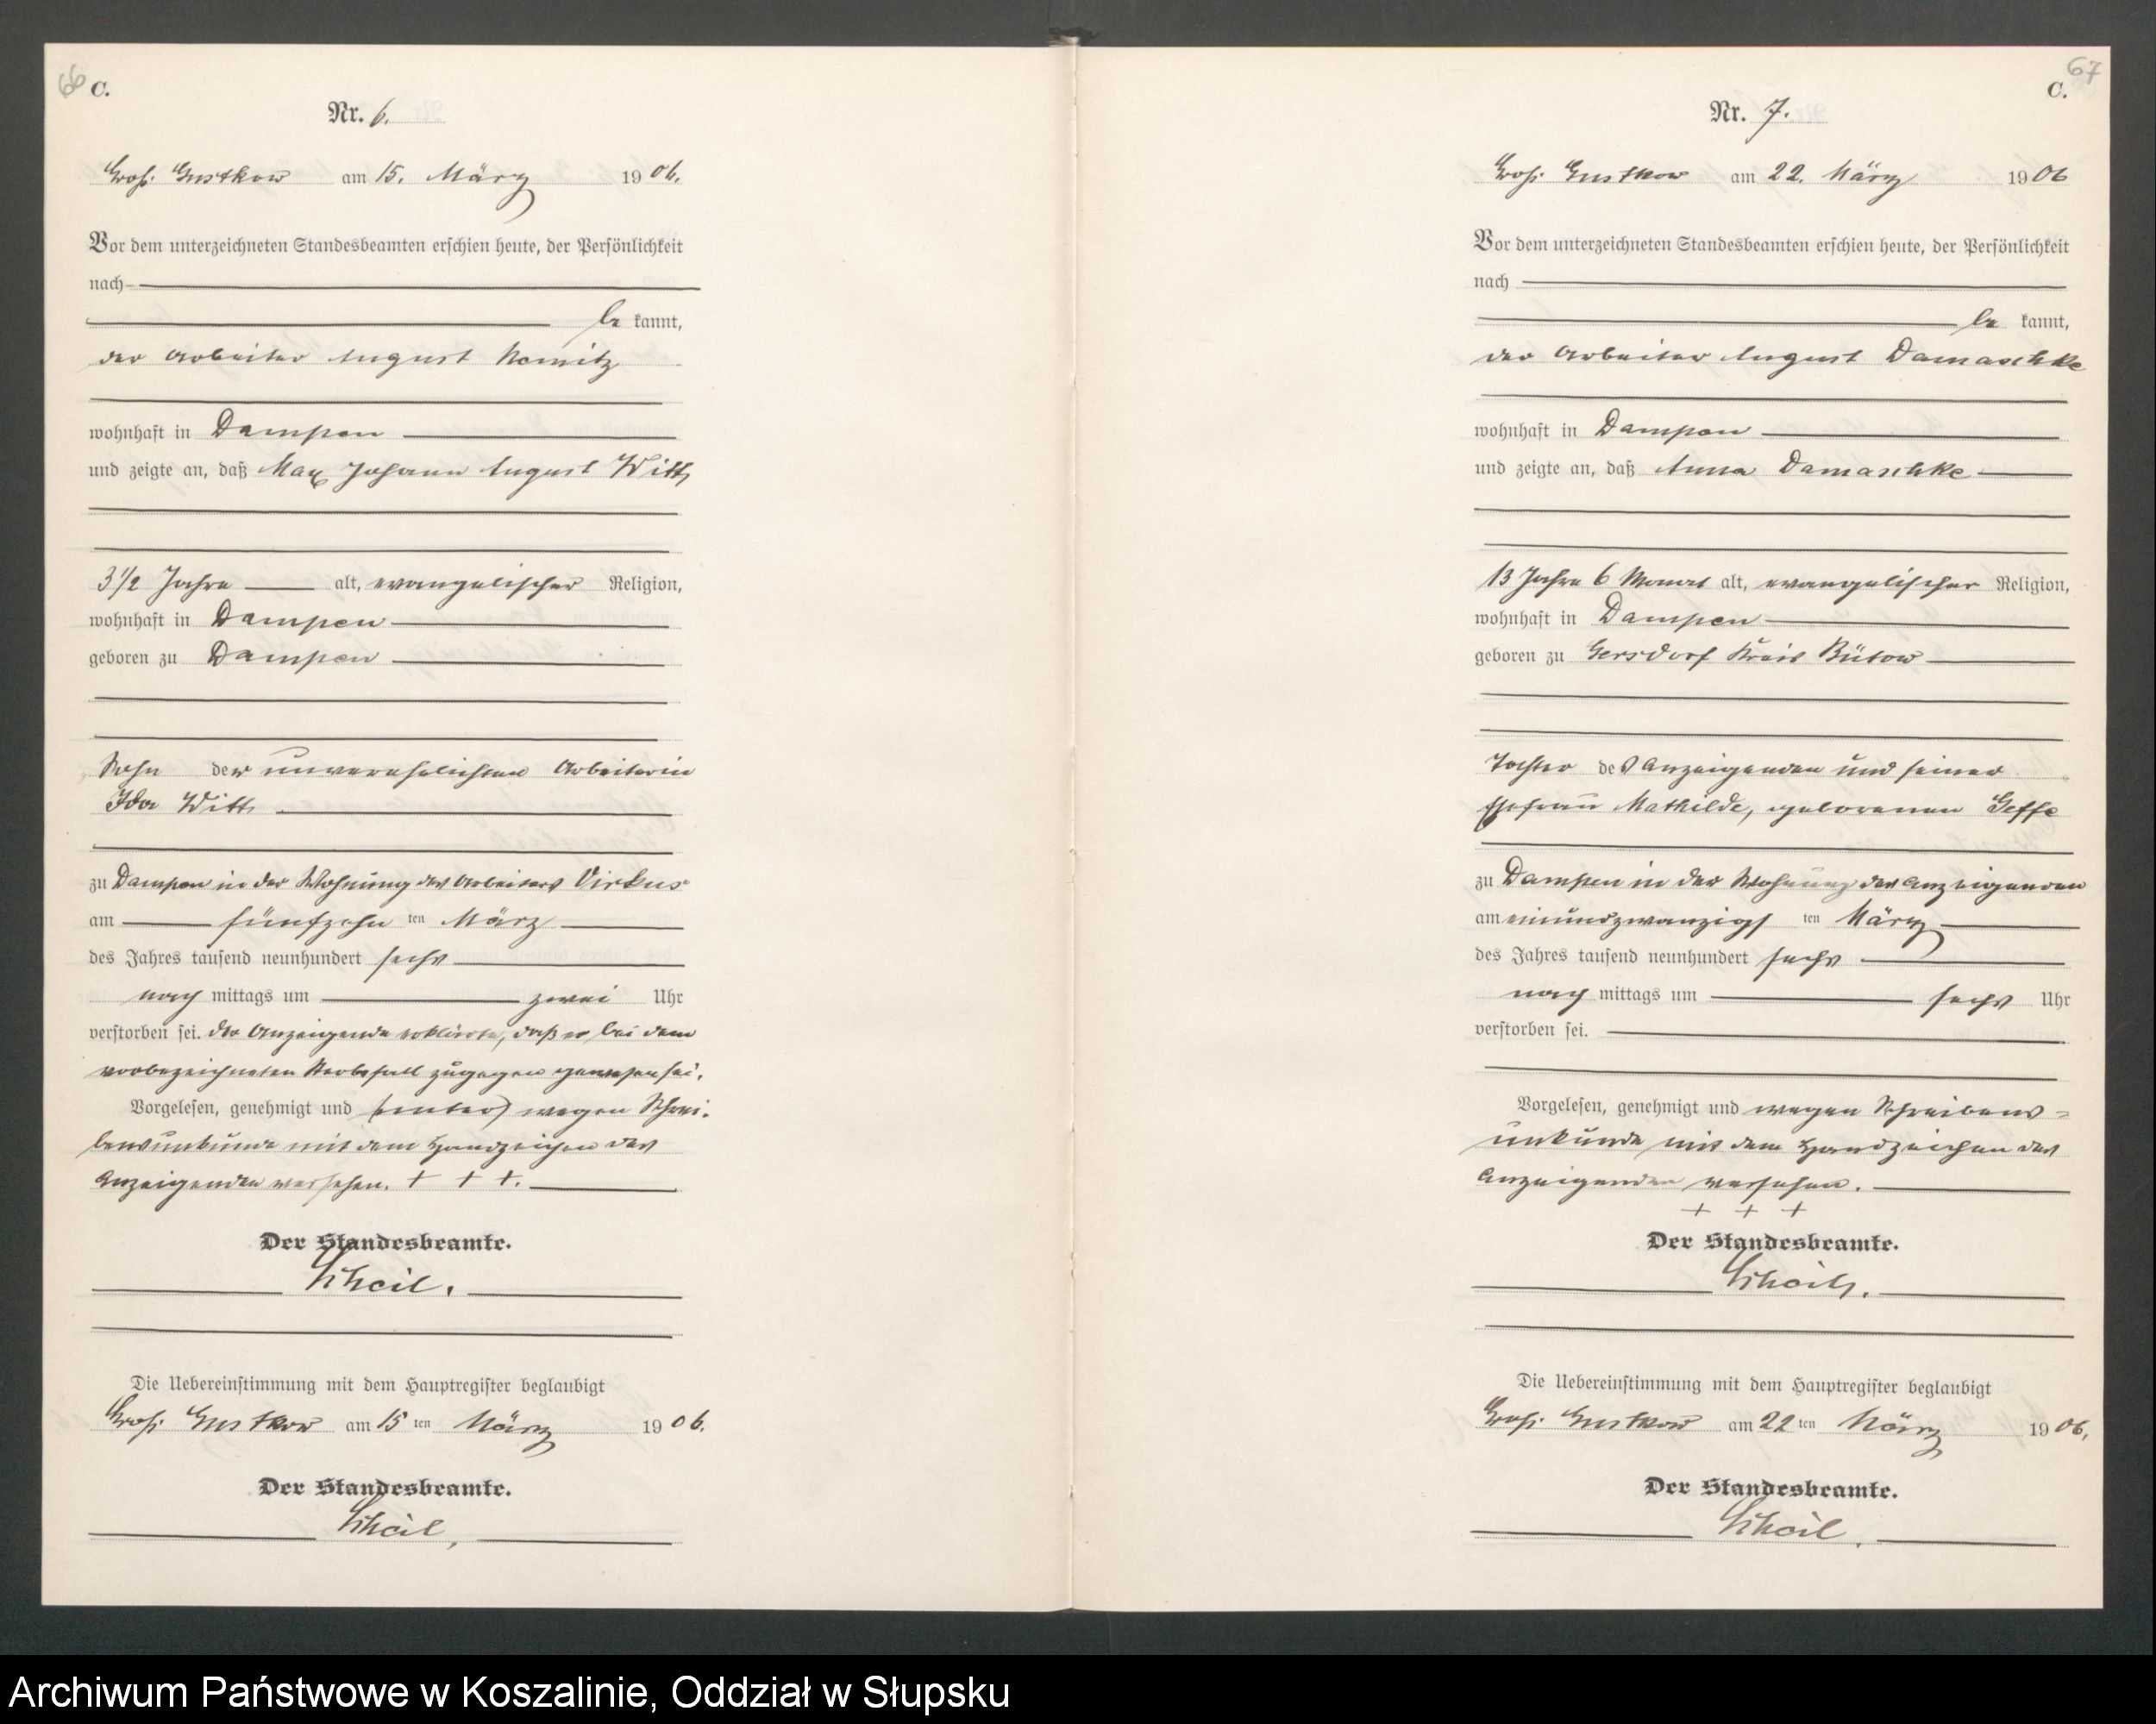 66
C.
Nr. 6.
Groß Gustkow am 15. März 1906.
Vor dem unterzeichneten Standesbeamten erschien heute, der Persönlichkeit
nach
be kannt,
der Arbeiter August Nemitz
wohnhaft in Dampen
und zeigte an, daß Max Johann August Witt,
3 1/2 Jahre alt, evangelischer Religion,
wohnhaft in Dampen
geboren zu Dampen
Sohn der unverehelichten Arbeiterin
Ida Witt
zu Dampen in der Wohnung des Arbeiters Virkus
am fünfzehn ten März
des Jahres tausend neunhundert sechs
nach mittags um zwei Uhr
verstorben sei. Der Anzeigende erklärte, daß er bei dem
vorbezeichneten Sterbefall zugegen gewesen sei.
Vorgelesen, genehmigt und wegen Schrei-
bensunkunde mit dem Handzeichen des
Anzeigenden versehen. + + +.
Der Standesbeamte.
Scheil.
Die Uebereinstimmung mit dem Hauptregister beglaubigt
Groß Gustkow am 15 ten März 1906.
Der Standesbeamte.
Scheil.
67
C.
Nr. 7.
Groß Gustkow am 22. März 1906
Vor dem unterzeichneten Standesbeamten erschien heute, der Persönlichkeit
nach
be kannt,
der Arbeiter August Damaschke
wohnhaft in Dampen
und zeigte an, daß Anna Damaschke
13 Jahre 6 Monat alt, evangelischer Religion,
wohnhaft in Dampen
geboren zu Gersdorf Kreis Bütow
Tochter des Anzeigenden und seiner
Ehefrau Mathilde, geborenen Geffe
zu Dampen in der Wohnung des Anzeigenden
am einundzwanzigs ten März
des Jahres tausend neunhundert sechs
nach mittags um sechs Uhr
verstorben sei.
Vorgelesen, genehmigt und wegen Schreibens-
unkunde mit dem Handzeichen des
Anzeigenden versehen.
+ + +
Der Standesbeamte.
Scheil.
Die Uebereinstimmung mit dem Hauptregister beglaubigt
Groß Gustkow am 22 ten März 1906.
Der Standesbeamte.
Scheil.
Archiwum Państwowe w Koszalinie, Oddział w Słupsku